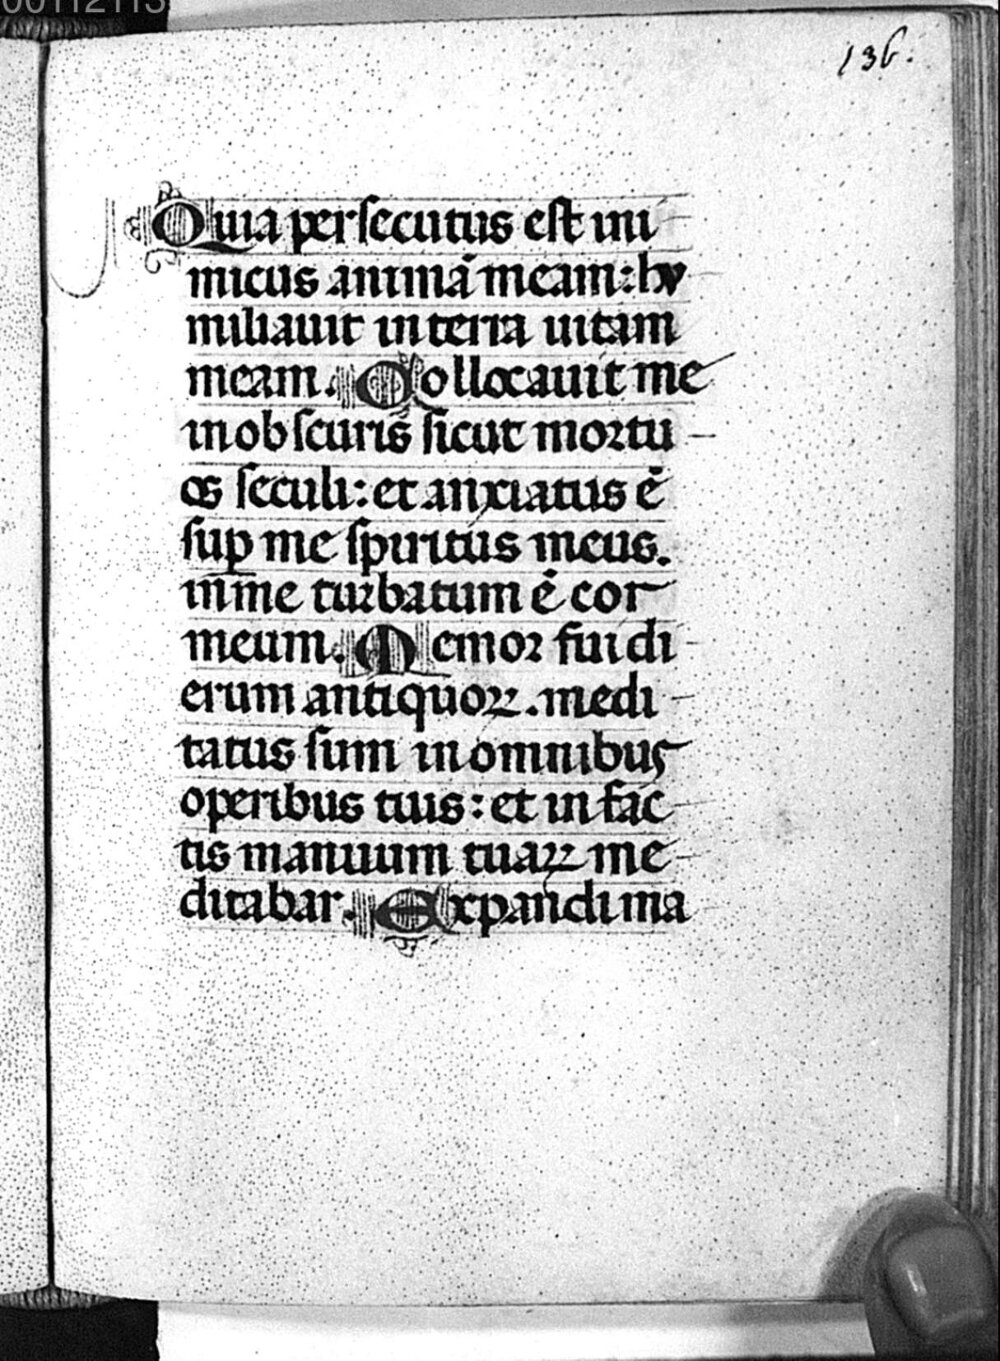 136.
Quia persecutus est ini
micus animã meam: hu
miliauit in terra uitam
meam. Collocauit me
in obscuris sicut mortu
os seculi: et anxiatus ẽ
suꝑ me spiritus meus.
in me turbatum ẽ cor
meum. Memor fui di
erum antiquoꝝ. medi
tatus sum in omnibus
operibus tuis: et in fac
tis manuum tuaꝝ me
ditabar. Expandi ma